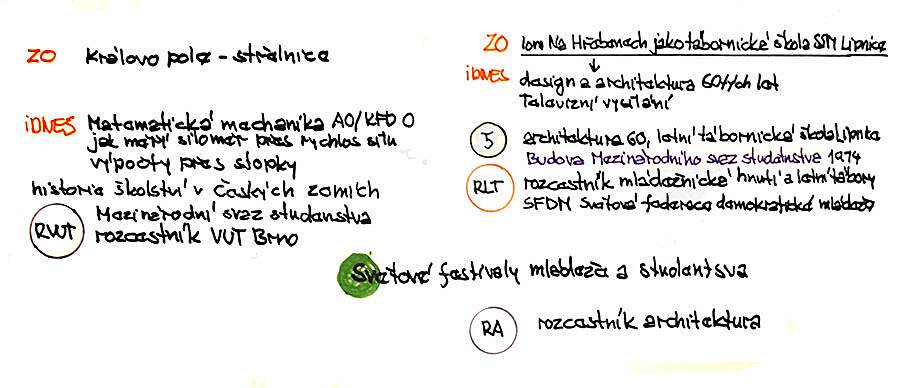 ZO Královo pole - střelnice
iDNES Matematická mechanika AO/KFD O
jak měří siloměr přes rychlos sílu
výpočty přes stopky
historie školství v českých zemích
RVUT Mezinárodní svaz studenstva
rozcestník VUT Brno
ZO lom Na Hřebenech jako tábornické škola SSM Lipnice
iDNES design a architektura 60tých let
Televizní vysílání
5 architektura 60, letní tábornická škola Lipnice
Budova Mezinárodního svaz studenstva 1974
RLT rozcestník mládežnické hnutí a letní tábory
SFDM Světová federace demokratické mládeže
Světové festivaly mládeže a studentsva
RA rozcestník architektura